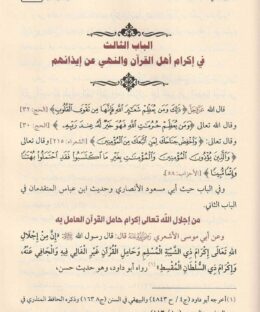 الباب الثالث
في إكرام أهل القرآن والنهي عن إيذائهم
قال الله عَزَّوَجَلَّ: ﴿ذَلِكَ وَمَن يُعَظِّمْ شَعَائِرَ اللَّهِ فَإِنَّهَا مِن تَقْوَى الْقُلُوبِ﴾ [الحج: ٣٢]
وقال الله تعالى: ﴿وَمَن يُعَظِّمْ حُرُمَاتِ اللَّهِ فَهُوَ خَيْرٌ لَّهُ عِندَ رَبِّهِ﴾ [الحج: ٣٠]
وقال تعالى: ﴿وَاخْفِضْ جَنَاحَكَ لِمَنِ اتَّبَعَكَ مِنَ الْمُؤْمِنِينَ﴾ [الشعراء: ٢١٥] وقال تعالى:
﴿وَالَّذِينَ يُؤْذُونَ الْمُؤْمِنِينَ وَالْمُؤْمِنَاتِ بِغَيْرِ مَا اكْتَسَبُوا فَقَدِ احْتَمَلُوا بُهْتَانًا
وَإِثْمًا مُّبِينًا﴾ [الأحزاب: ٥٨]
وفي الباب حيث أبي مسعود الأنصاري وحديث ابن عباس المتقدمان في
الباب الثاني.
من إجلال الله تعالى إكرام حامل القرآن العامل به
وعن أبي موسى الأشعري قال: قال رسول الله ﷺ: «إِنَّ مِنْ إِجْلَالِ
اللهِ تَعَالَى إِكْرَامَ ذِي الشَّيْبَةِ الْمُسْلِمِ وَحَامِلِ الْقُرْآنِ غَيْرِ الْغَالِي فِيهِ وَالْجَافِي عَنْهُ،
وَإِكْرَامَ ذِي السُّلْطَانِ الْمُقْسِطِ» رواه أبو داود، وهو حديث حسن.
(١) أخرجه أبو داود (ج٤ / ح ٤٨٤٣) والبيهقي في السنن (ج٨ / ١٦٣) وذكره الحافظ المنذري في